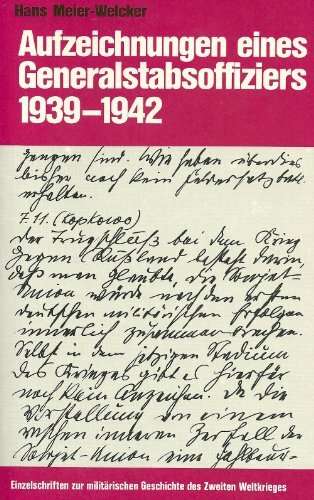 Hans Meier-Welcker
Aufzeichnungen eines
Generalstabsoffiziers
1939–1942
gangen sind. Wir haben überdies
bisher noch kein
erhalten.
7.11. (Copkowo)
Der Trugschluß bei dem Krieg
gegen Rußland besteht darin,
daß man glaubte, die Sowjet-
Union würde nach den ersten
deutschen militärischen Erfolgen
innerlich zusammenbrechen.
Selbst in dem jetzigen Stadium
des Krieges gibt es hierfür
noch kein Anzeichen. Da die
Vorstellung von einem
raschen inneren Zerfall der
Sowjet-Union eine
Einzelschriften zur militärischen Geschichte des Zweiten Weltkrieges